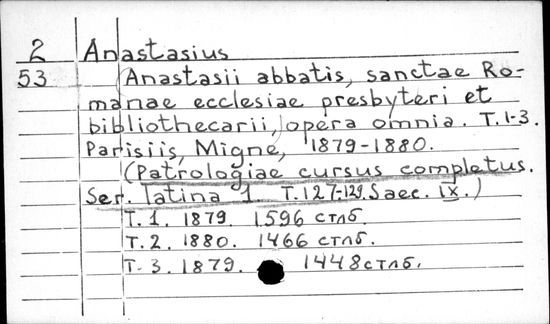 2 Anastasius
53 (Anastasii abbatis, sanctae Ro-
manae ecclesiae presbyteri et
bibliothecarii,) opera omnia. T. 1-3.
Parisiis, Migne, 1879-1880.
(Patrologiae cursus completus.
Ser. latina 1 T. 127-129. Saec. IX.)
T. 1. 1879. 1596 стлб.
T. 2. 1880. 1466 стлб.
T. 3. 1879. 1448 стлб.